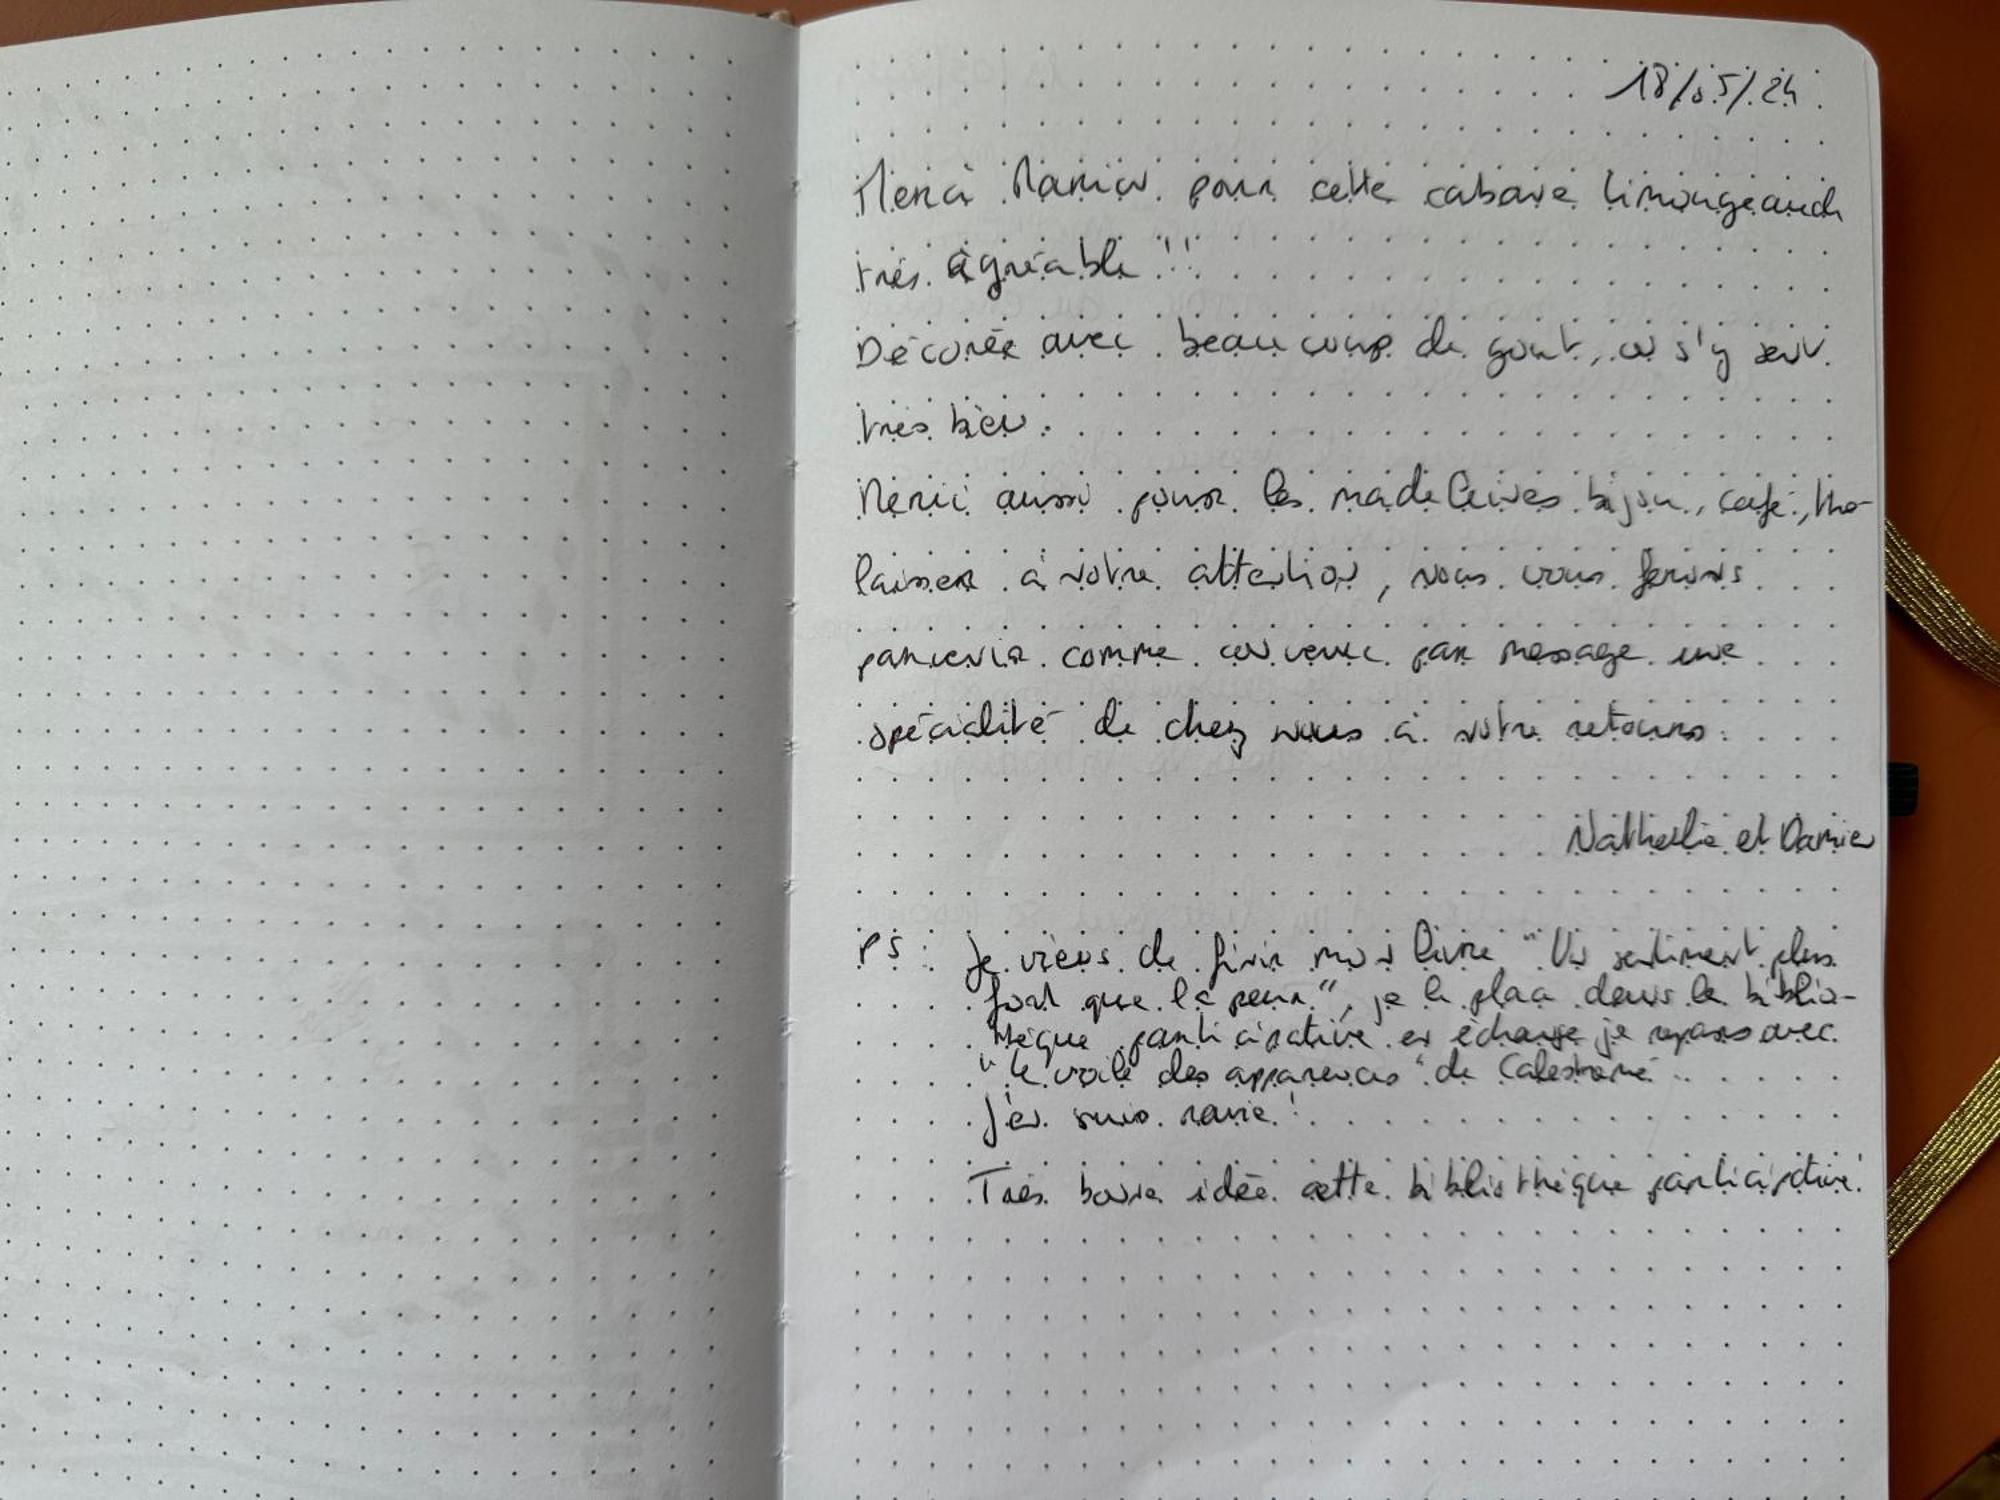 18/05/24
Merci Marion pour cette cabane limougeaude
très agréable !!
Décorée avec beaucoup de goût, on s'y sent
très bien.
Merci aussi pour les madeleines bijou, café, thé
laisser à notre attention, nous vous ferons
parvenir comme convenu par message une
spécialité de chez nous à notre retours.
Nathalie et Damien
PS : Je viens de finir mon livre "Un sentiment plus
fort que la peur", je le place dans la biblio-
thèque participative en échange je repars avec
"le voile des apparences" de
J'en suis ravie !
Très bonne idée cette bibliothèque participative !